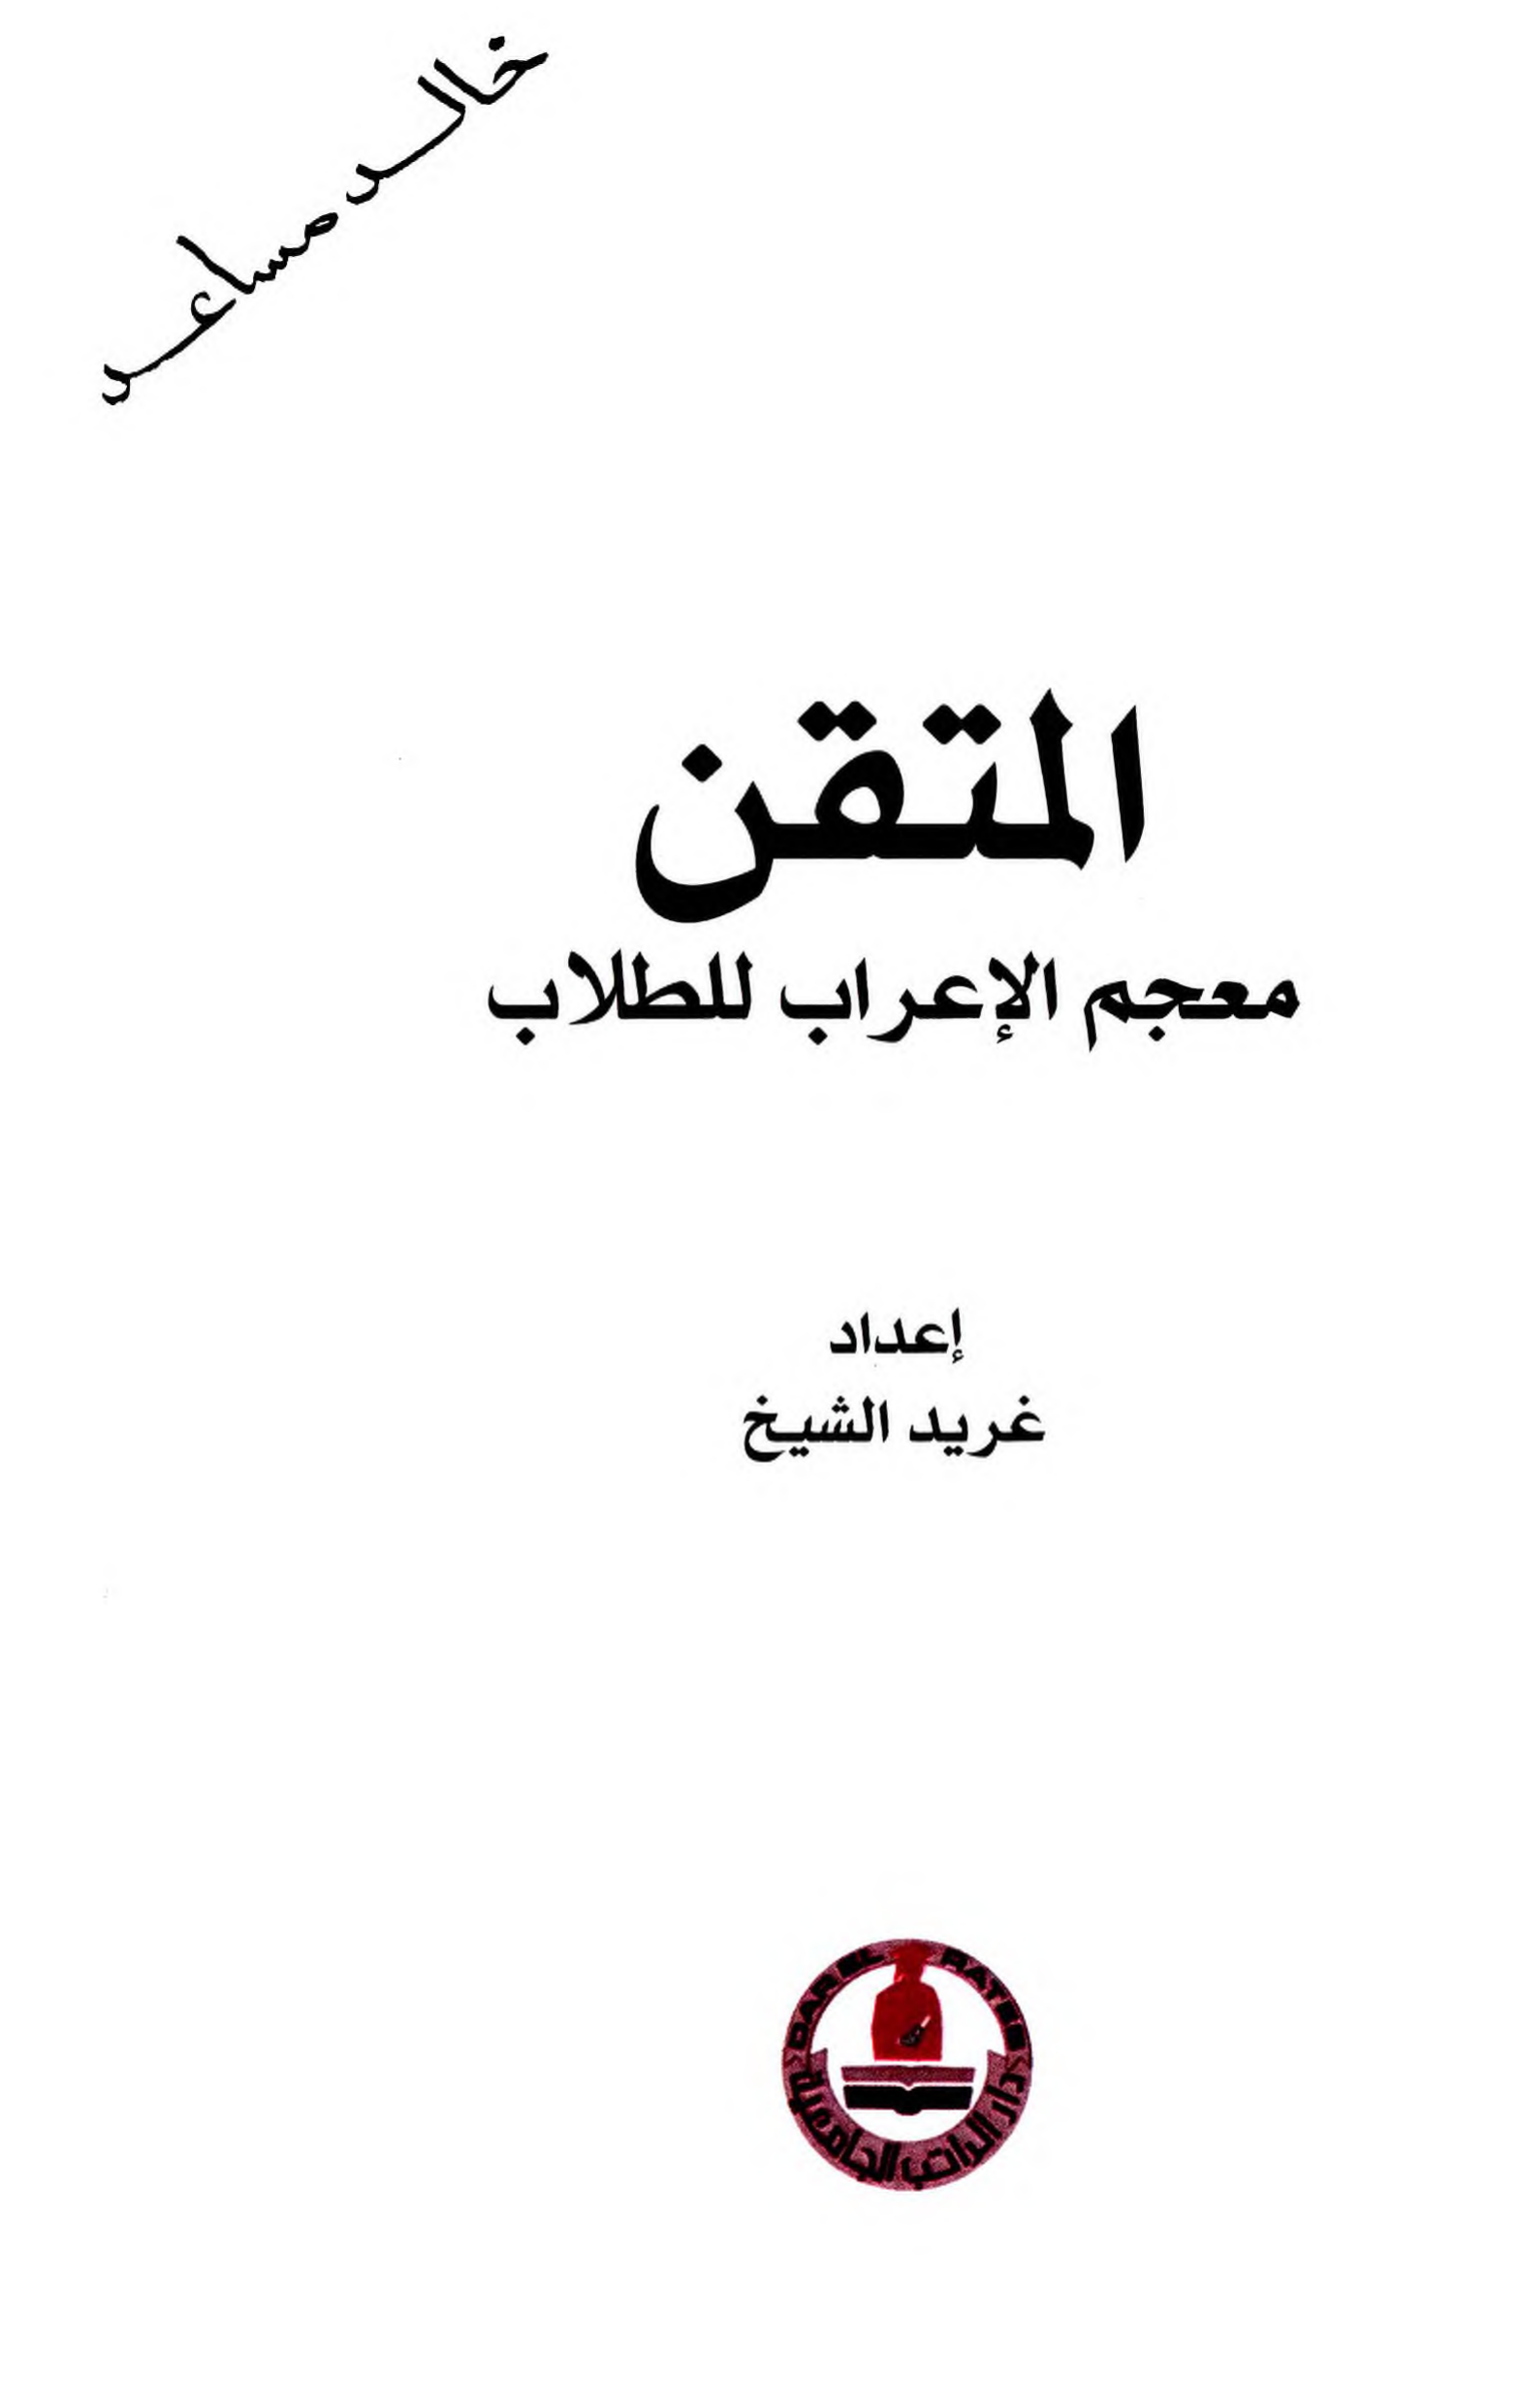 خالد مساعد
المتقن
معجم الإعراب للطلاب
إعداد
غريد الشيخ
DAR EL RATEB
دار الراتب الجامعية